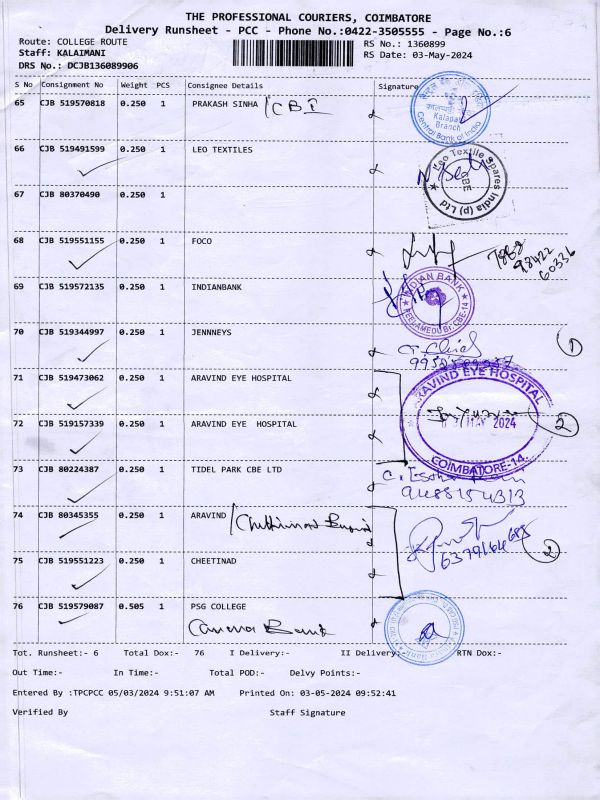 THE PROFESSIONAL COURIERS, COIMBATORE
Delivery Runsheet - PCC - Phone No.:0422-3505555 - Page No.:6
Route: COLLEGE ROUTE RS No.: 1360899
Staff: KALAIMANI RS Date: 03-May-2024
DRS No.: DCJB136089906
S No Consignment No Weight PCS Consignee Details Signature
65 CJB 519570818 0.250 1 PRAKASH SINHA / CBI
Kalapatti Branch Central Bank of India
66 CJB 519491599 0.250 1 LEO TEXTILES
Leo Textile Spares India (p) Ltd CBE
67 CJB 80370490 0.250 1
68 CJB 519551155 0.250 1 FOCO
98422
60336
69 CJB 519572135 0.250 1 INDIANBANK
INDIAN BANK PEELAMEDU Br. CBE-14
70 CJB 519344997 0.250 1 JENNNEYS
1
71 CJB 519473062 0.250 1 ARAVIND EYE HOSPITAL
ARAVIND EYE HOSPITAL
72 CJB 519157339 0.250 1 ARAVIND EYE HOSPITAL
MAY 2024 2
COIMBATORE-14.
73 CJB 80224387 0.250 1 TIDEL PARK CBE LTD
9488154313
74 CJB 80345355 0.250 1 ARAVIND /
6379164685 2
75 CJB 519551223 0.250 1 CHEETINAD
76 CJB 519579087 0.505 1 PSG COLLEGE
Canera Bank
Tot. Runsheet:- 6 Total Dox:- 76 I Delivery:- II Delivery:- RTN Dox:-
Out Time:- In Time:- Total POD:- Delvy Points:-
Entered By :TPCPCC 05/03/2024 9:51:07 AM Printed On: 03-05-2024 09:52:41
Verified By Staff Signature